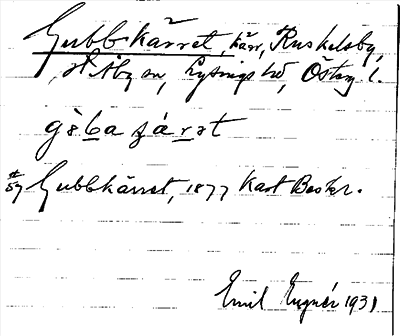 Gubbkärret, kärr, Ruskelsby,
St Åby sn, Lysings hd, Österg. l.
gùba ʒárət
#59 Gubbkärret, 1877 Kart Beskr.
Emil Eugnér 1931